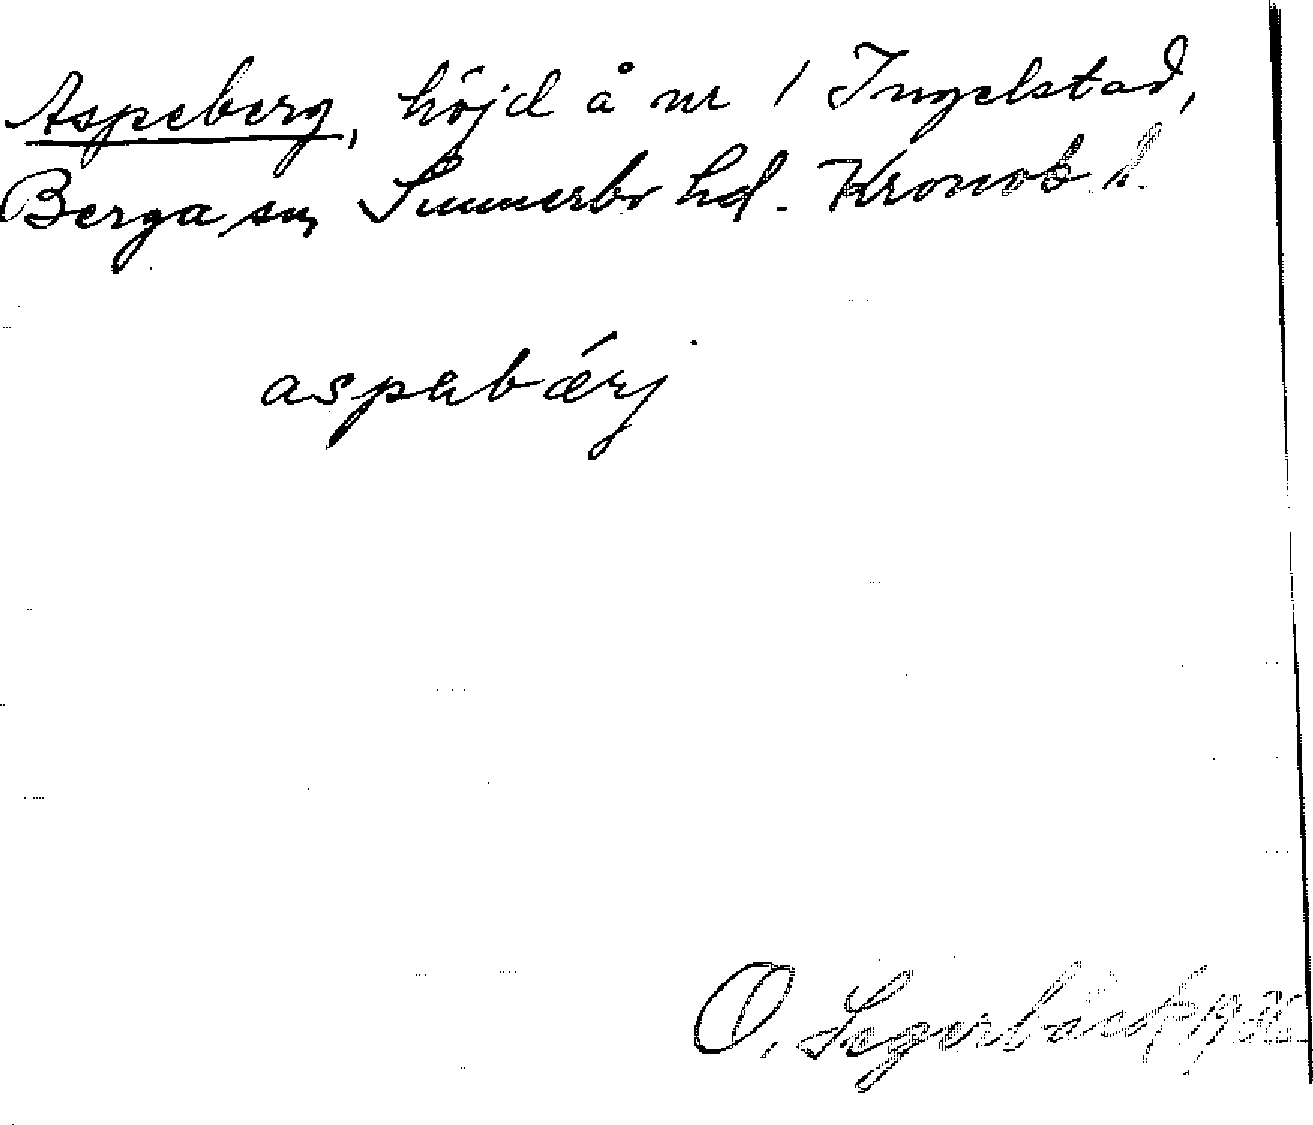 Aspeberg, höjd å nr 1 Ingelstad,
Berga sn, Sunnerbo hd. Kronob. l.
aspabǽrj
O. Segerbäck 19